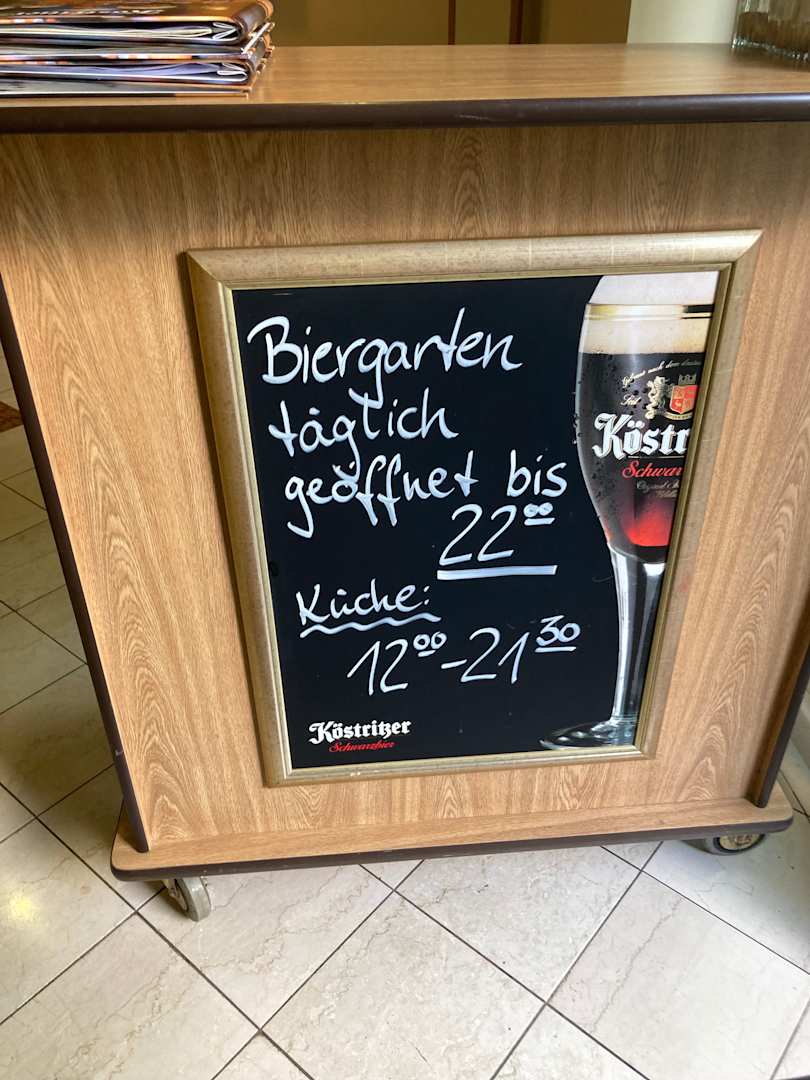 Biergarten
täglich
geöffnet bis
22⁰⁰
Küche:
12⁰⁰-21³⁰
Köstritzer
Schwarzbier
Köstr
Schwar